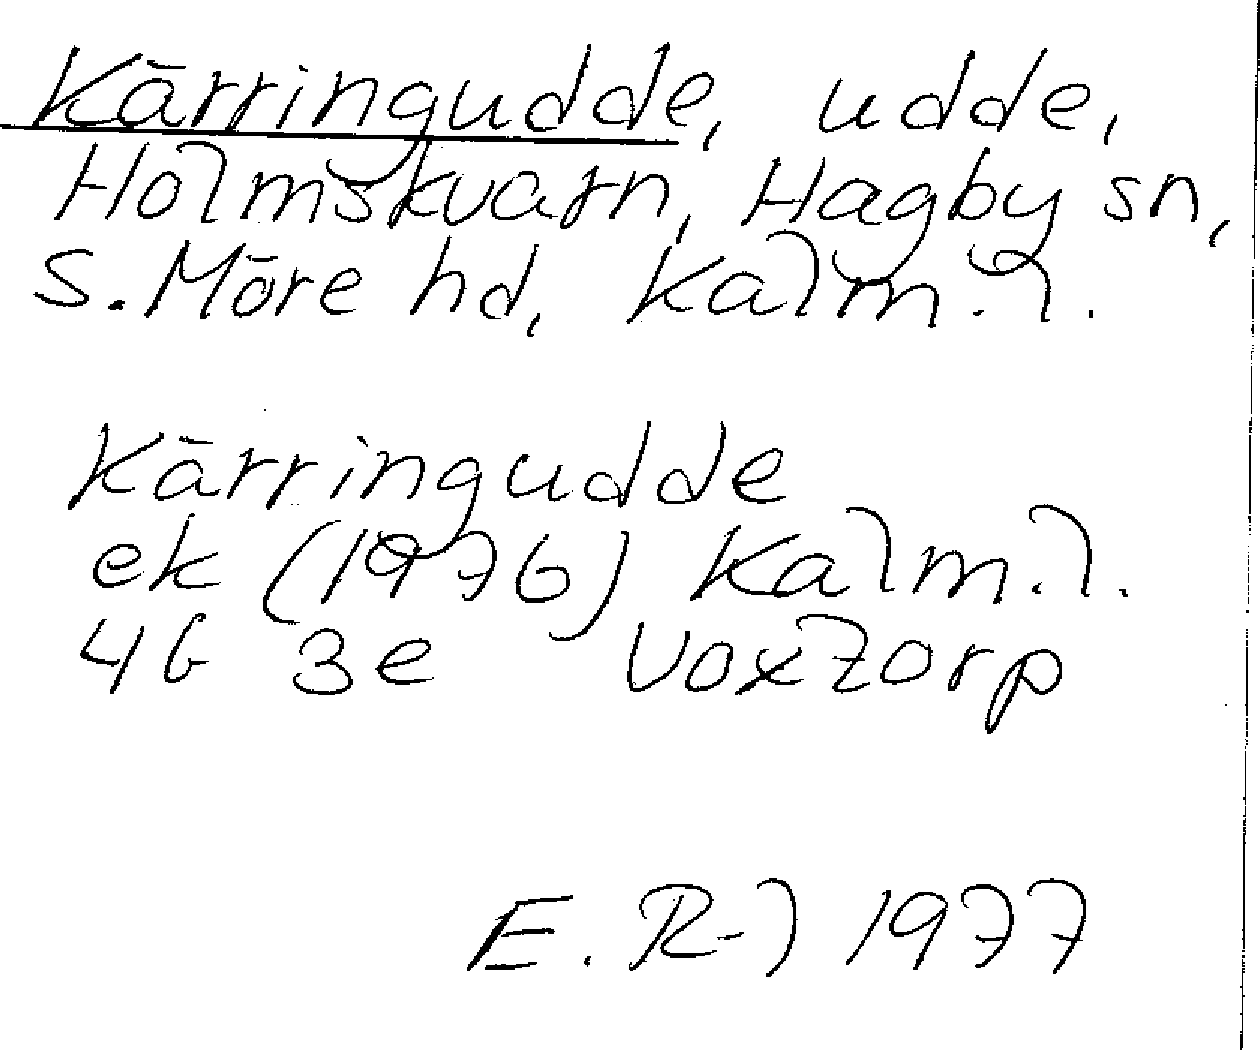 Kärringudde, udde,
Holmskvarn, Hagby sn,
S. Möre hd, Kalm. l.
Kärringudde
ek (1976) Kalm. l.
4G 3e Voxtorp
E. R-l 1977